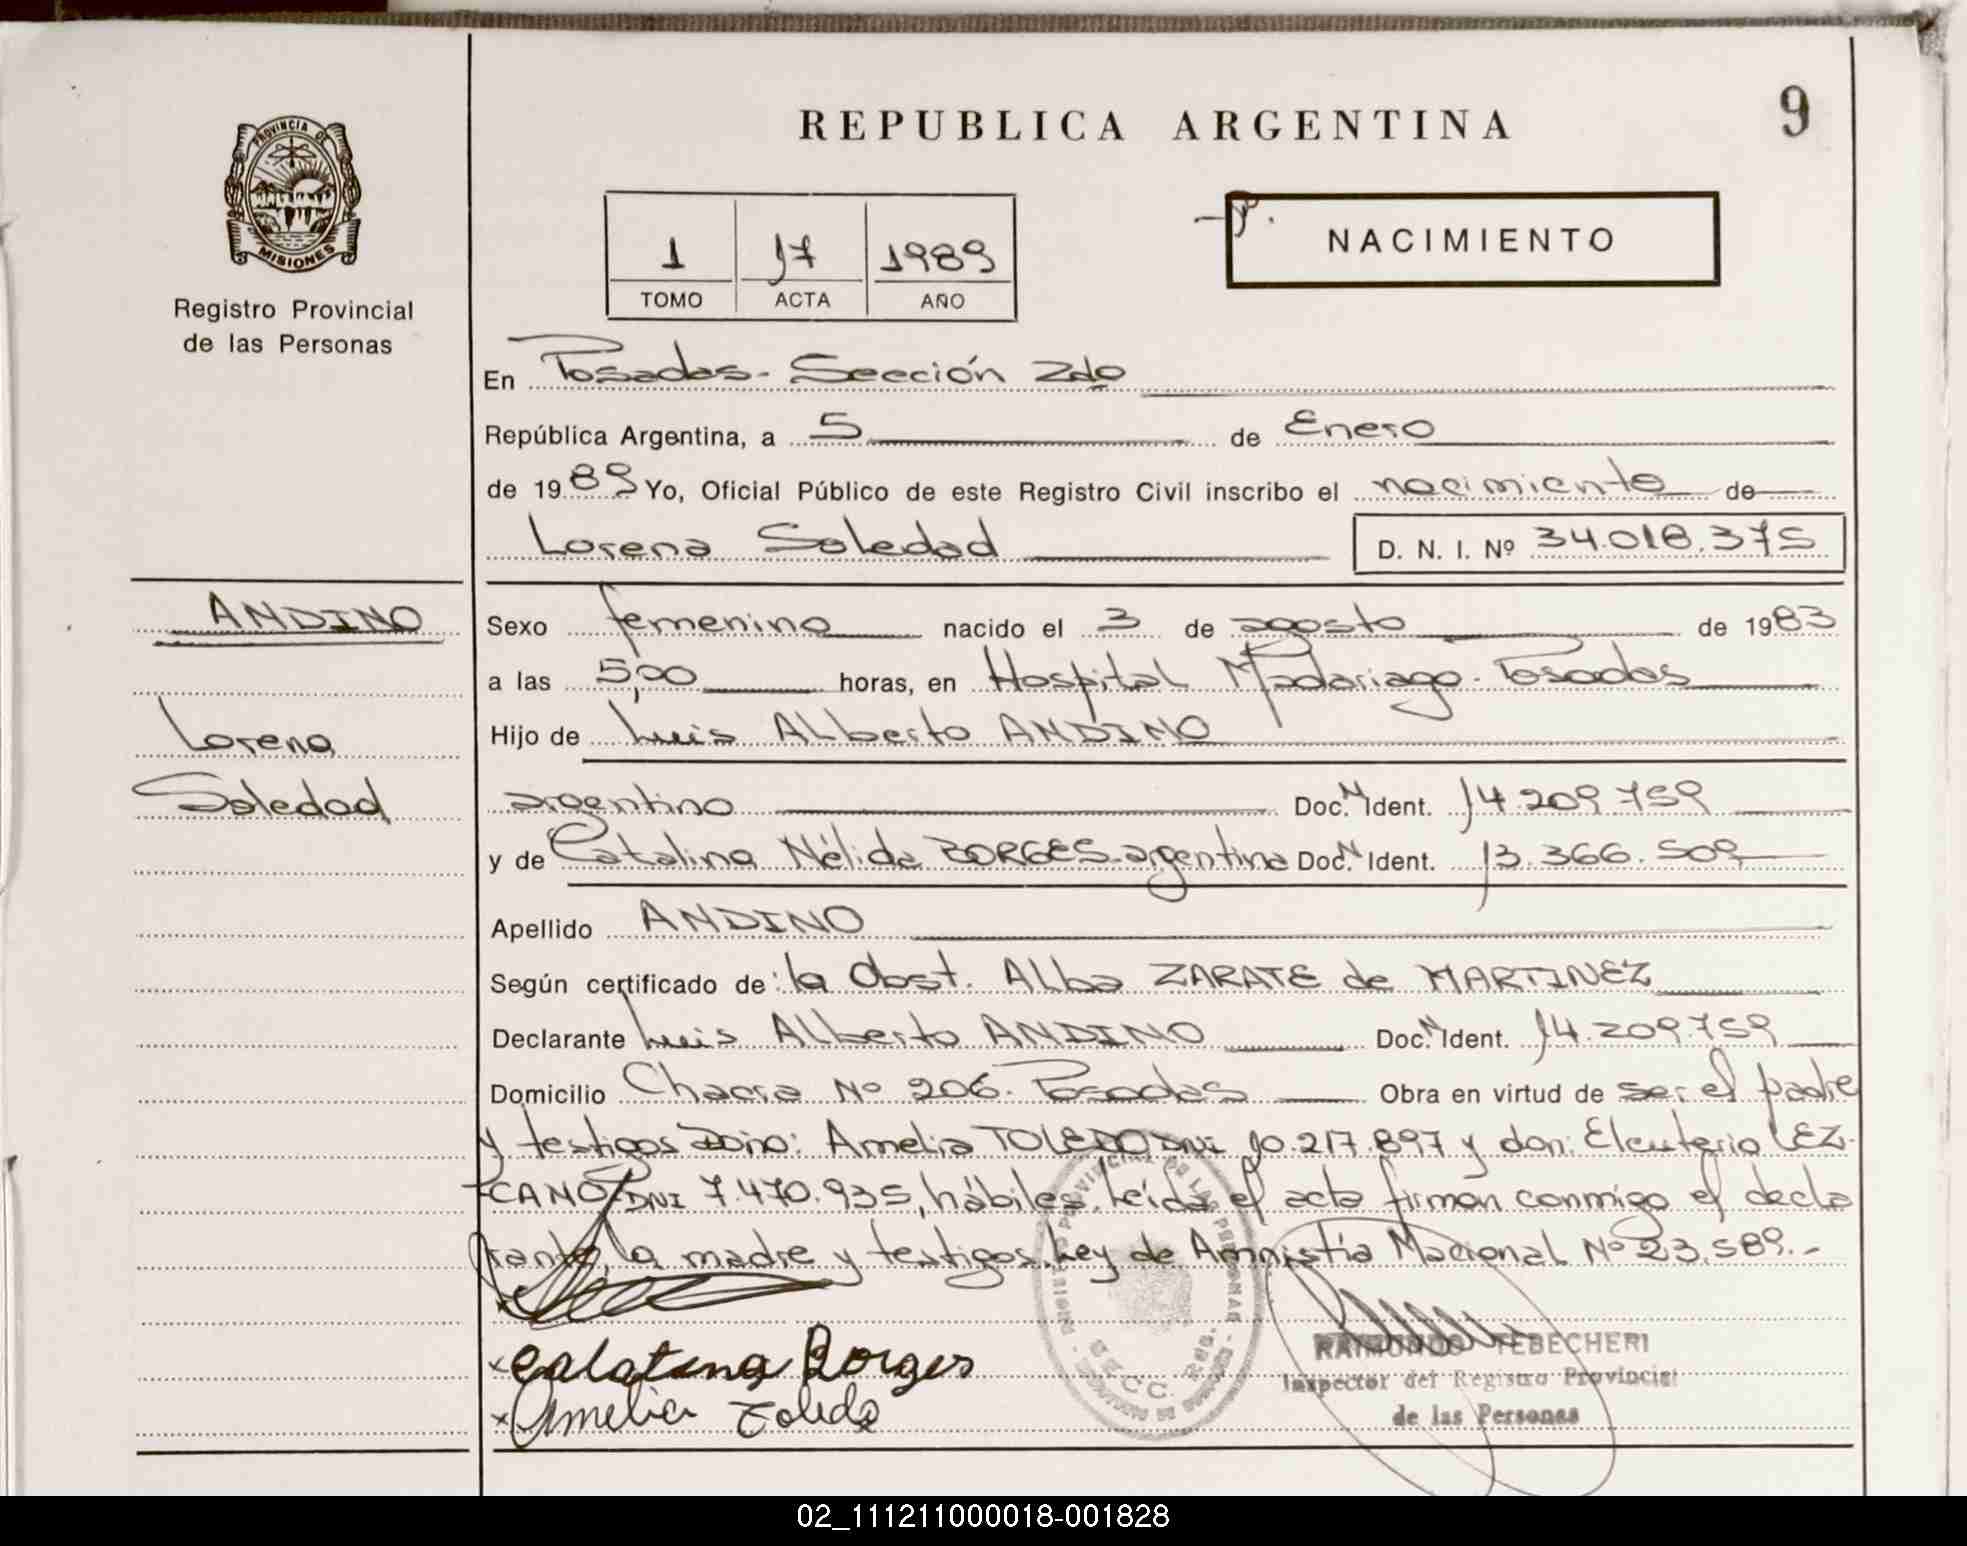 REPUBLICA ARGENTINA
9
PROVINCIA DE
MISIONES
Registro Provincial
de las Personas
1 17 1989
TOMO ACTA AÑO
NACIMIENTO
En Posadas - Sección 2da
República Argentina, a 5 de Enero
de 1989 Yo, Oficial Público de este Registro Civil inscribo el nacimiento de
Lorena Soledad D. N. I. Nº 34.018.375
ANDINO
Lorena
Soledad
Sexo femenino nacido el 3 de agosto de 1983
a las 5,00 horas, en Hospital Madariaga - Posadas
Hijo de Luis Alberto ANDINO
argentino Doc. N Ident. 14.209.759
y de Catalina Nélida BORGES - argentina Doc. N Ident. 13.366.509
Apellido ANDINO
Según certificado de: la Obst. Alba ZARATE de MARTINEZ
Declarante Luis Alberto ANDINO Doc. N Ident. 14.209.759
Domicilio Chacra Nº 206. Posadas Obra en virtud de ser el padre
y testigos Doña: Amelia TOLEDO DNI 10.217.897 y don: Eleuterio LEZ-
CANO DNI 7.470.935, hábiles. Leída el acta firman conmigo el decla
rante, la madre y testigos. Ley de Amnistía Nacional Nº 23.589.-
x
x Catalina Borges
x Amelia Toledo
RAIMUNDO TEBECHERI
Inspector del Registro Provincial
de las Personas
02_111211000018-001828